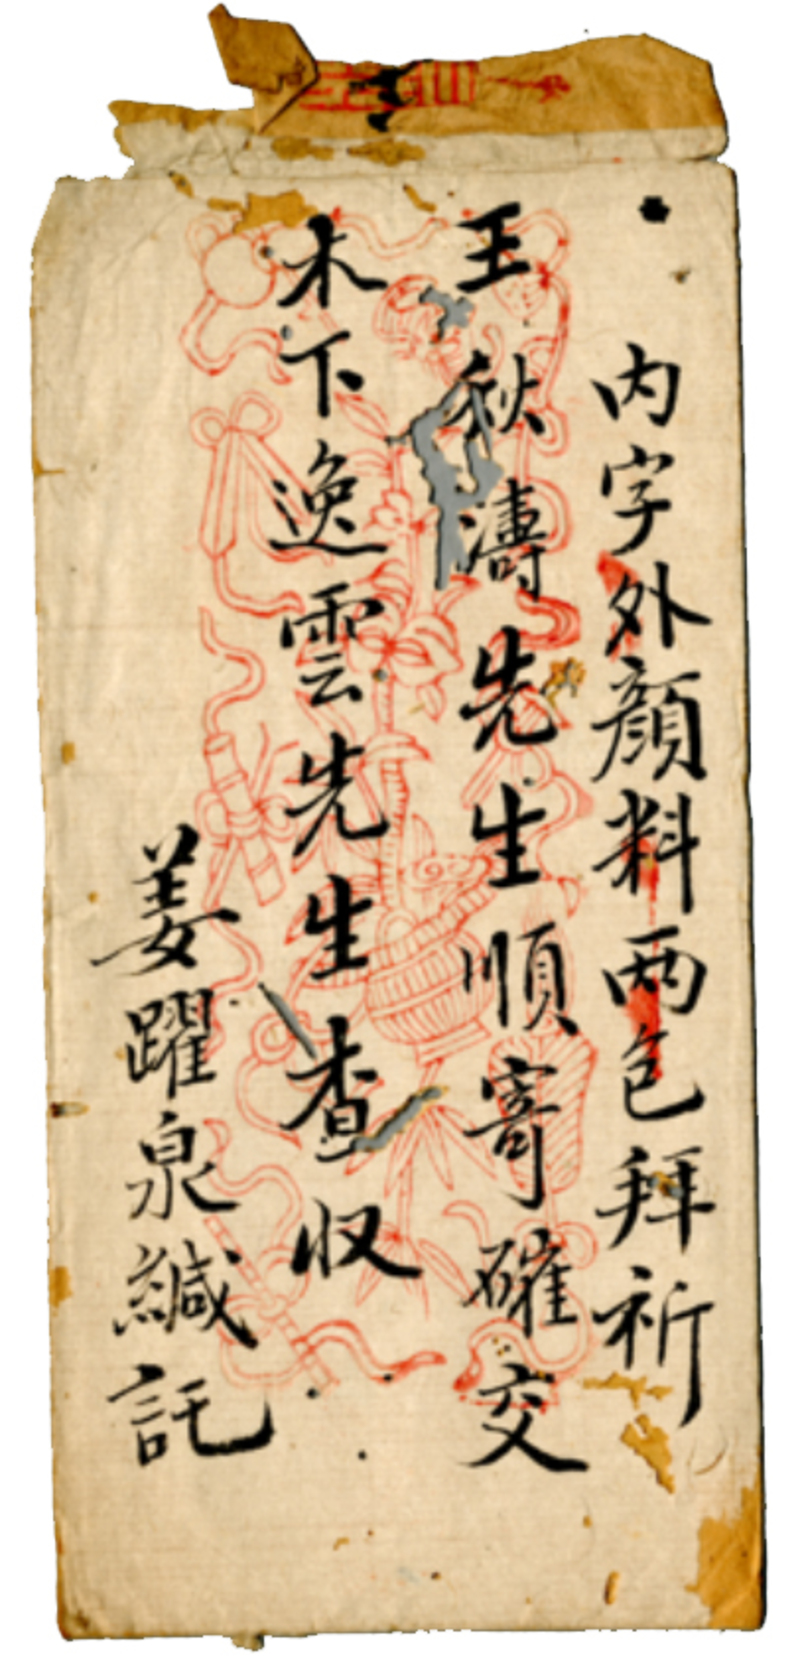 内字外顔料两色拜祈
王秋濤先生順寄確交
木下逸雲先生查收
姜躍泉緘託